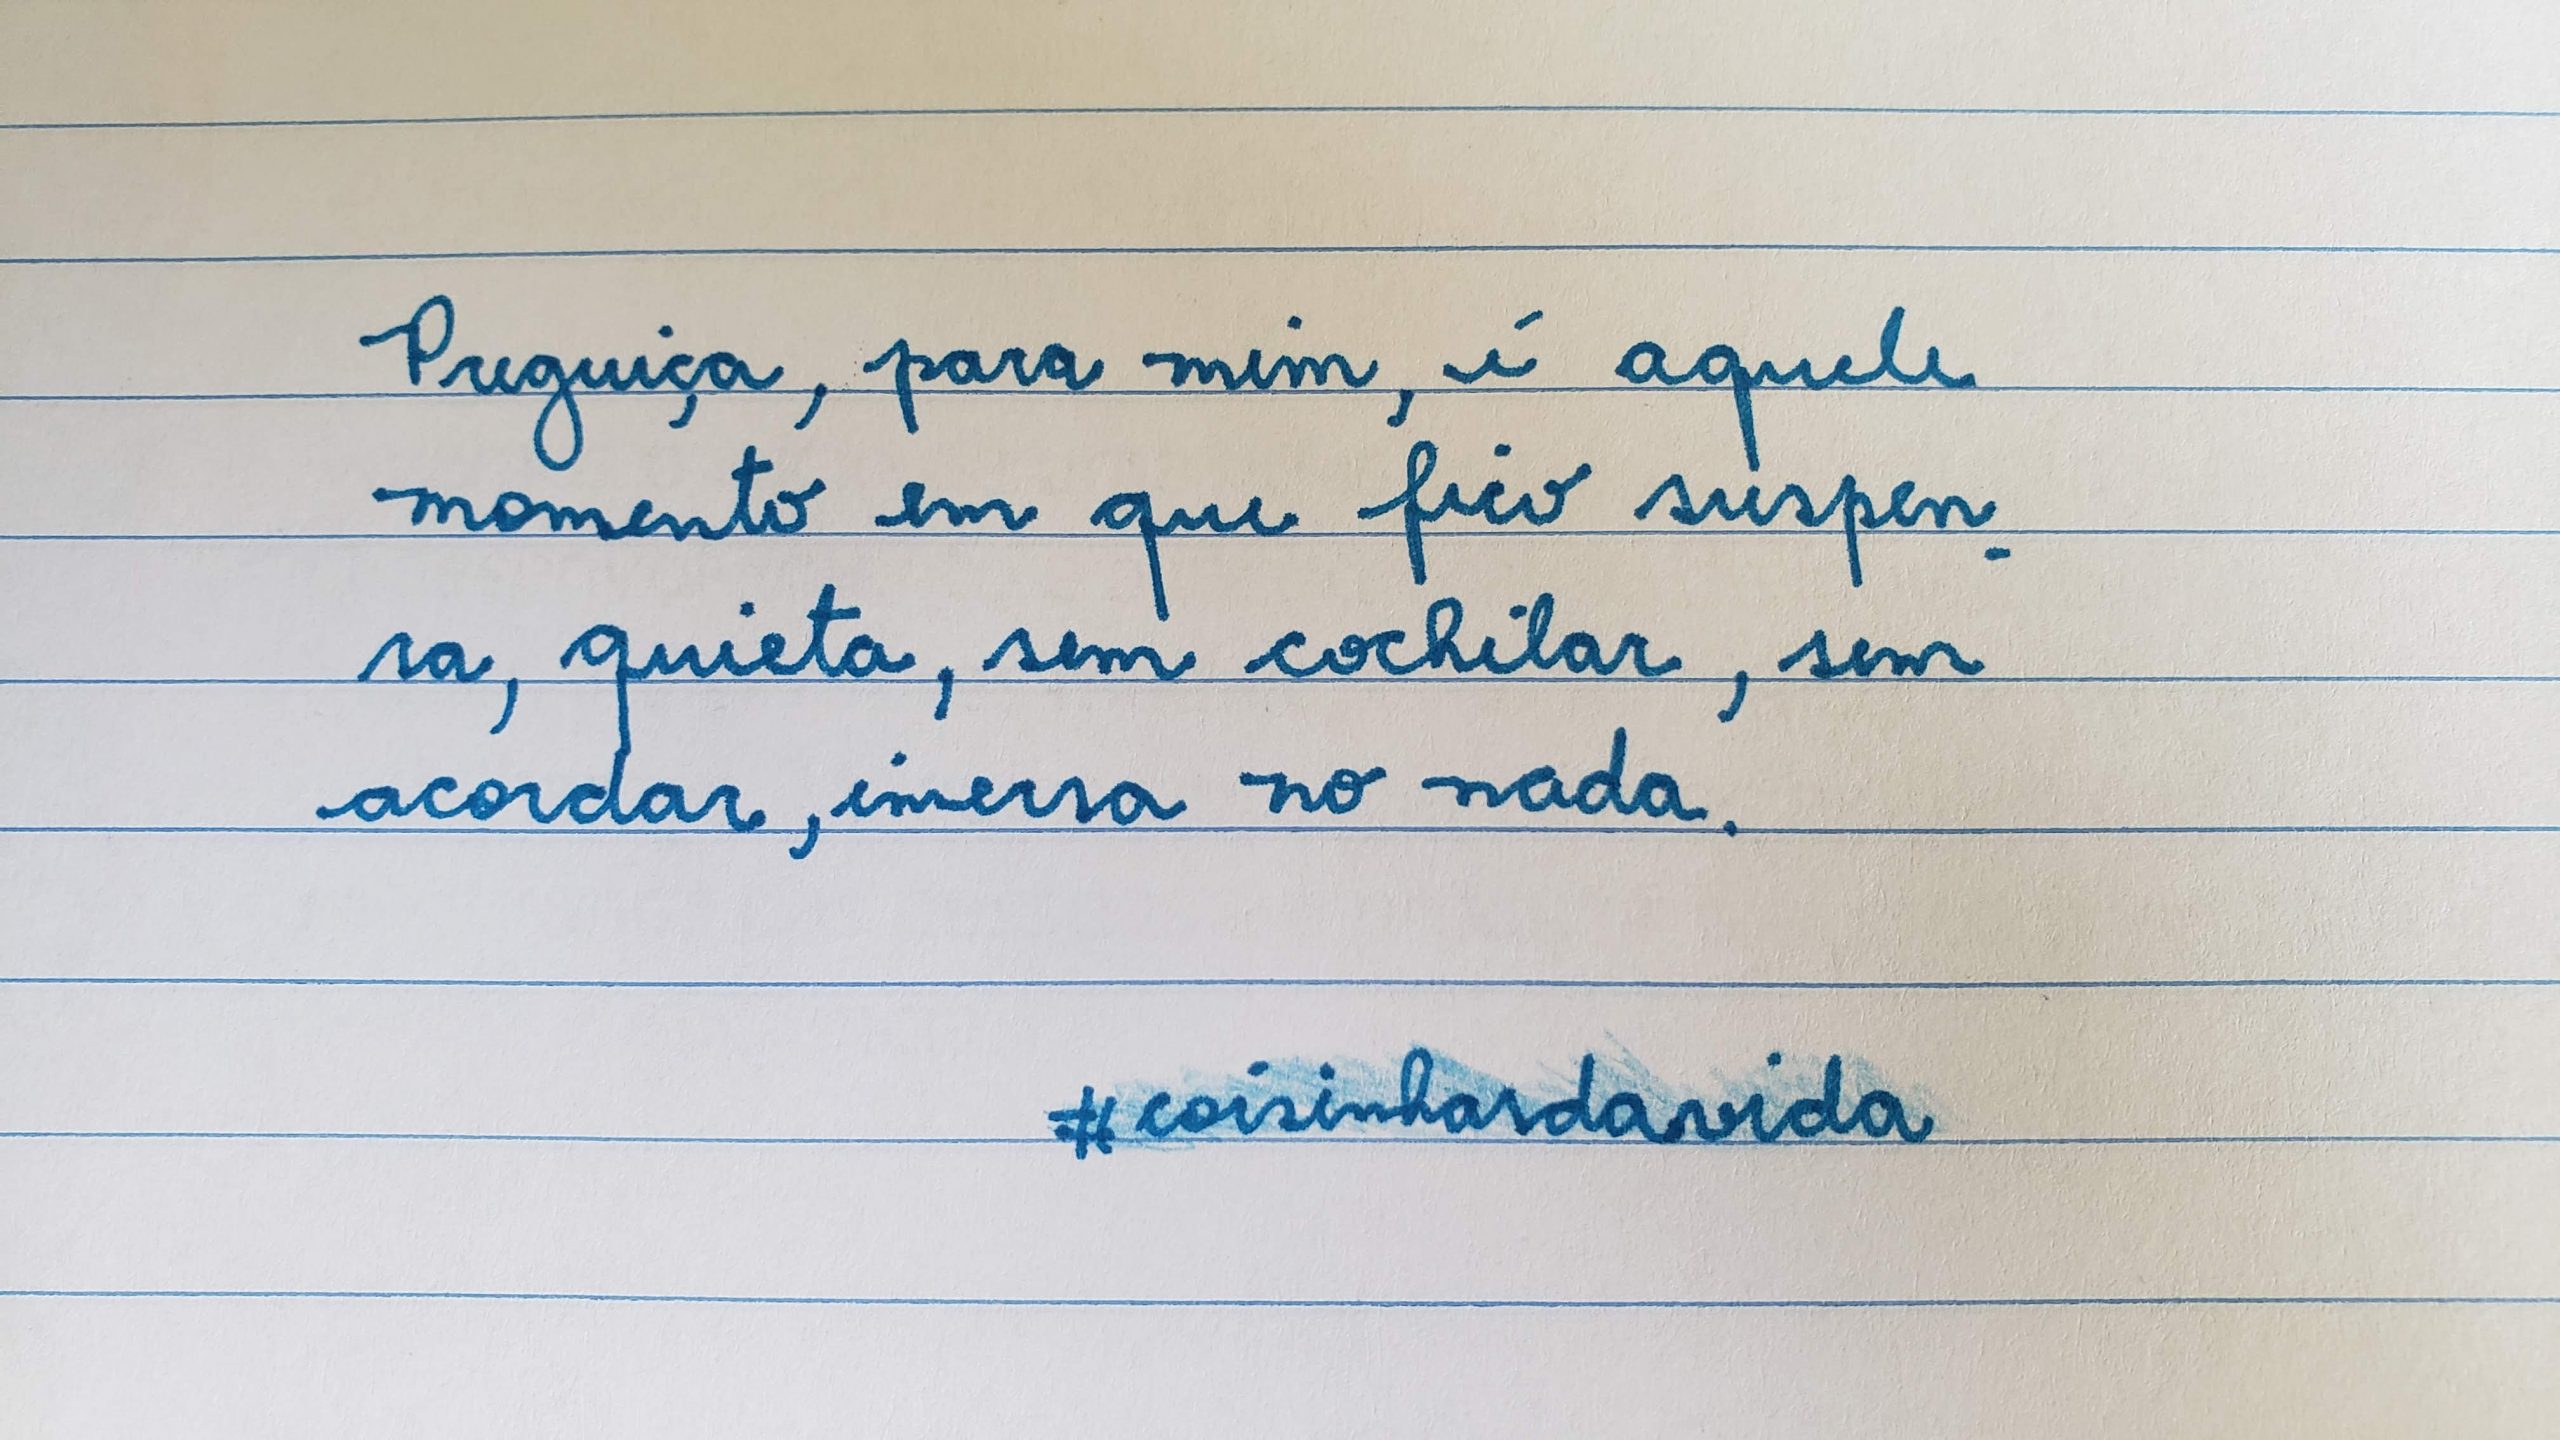 Preguiça, para mim, é aquele
momento em que fico suspen-
sa, quieta, sem cochilar, sem
acordar, imersa no nada.
#coisinhasdavida